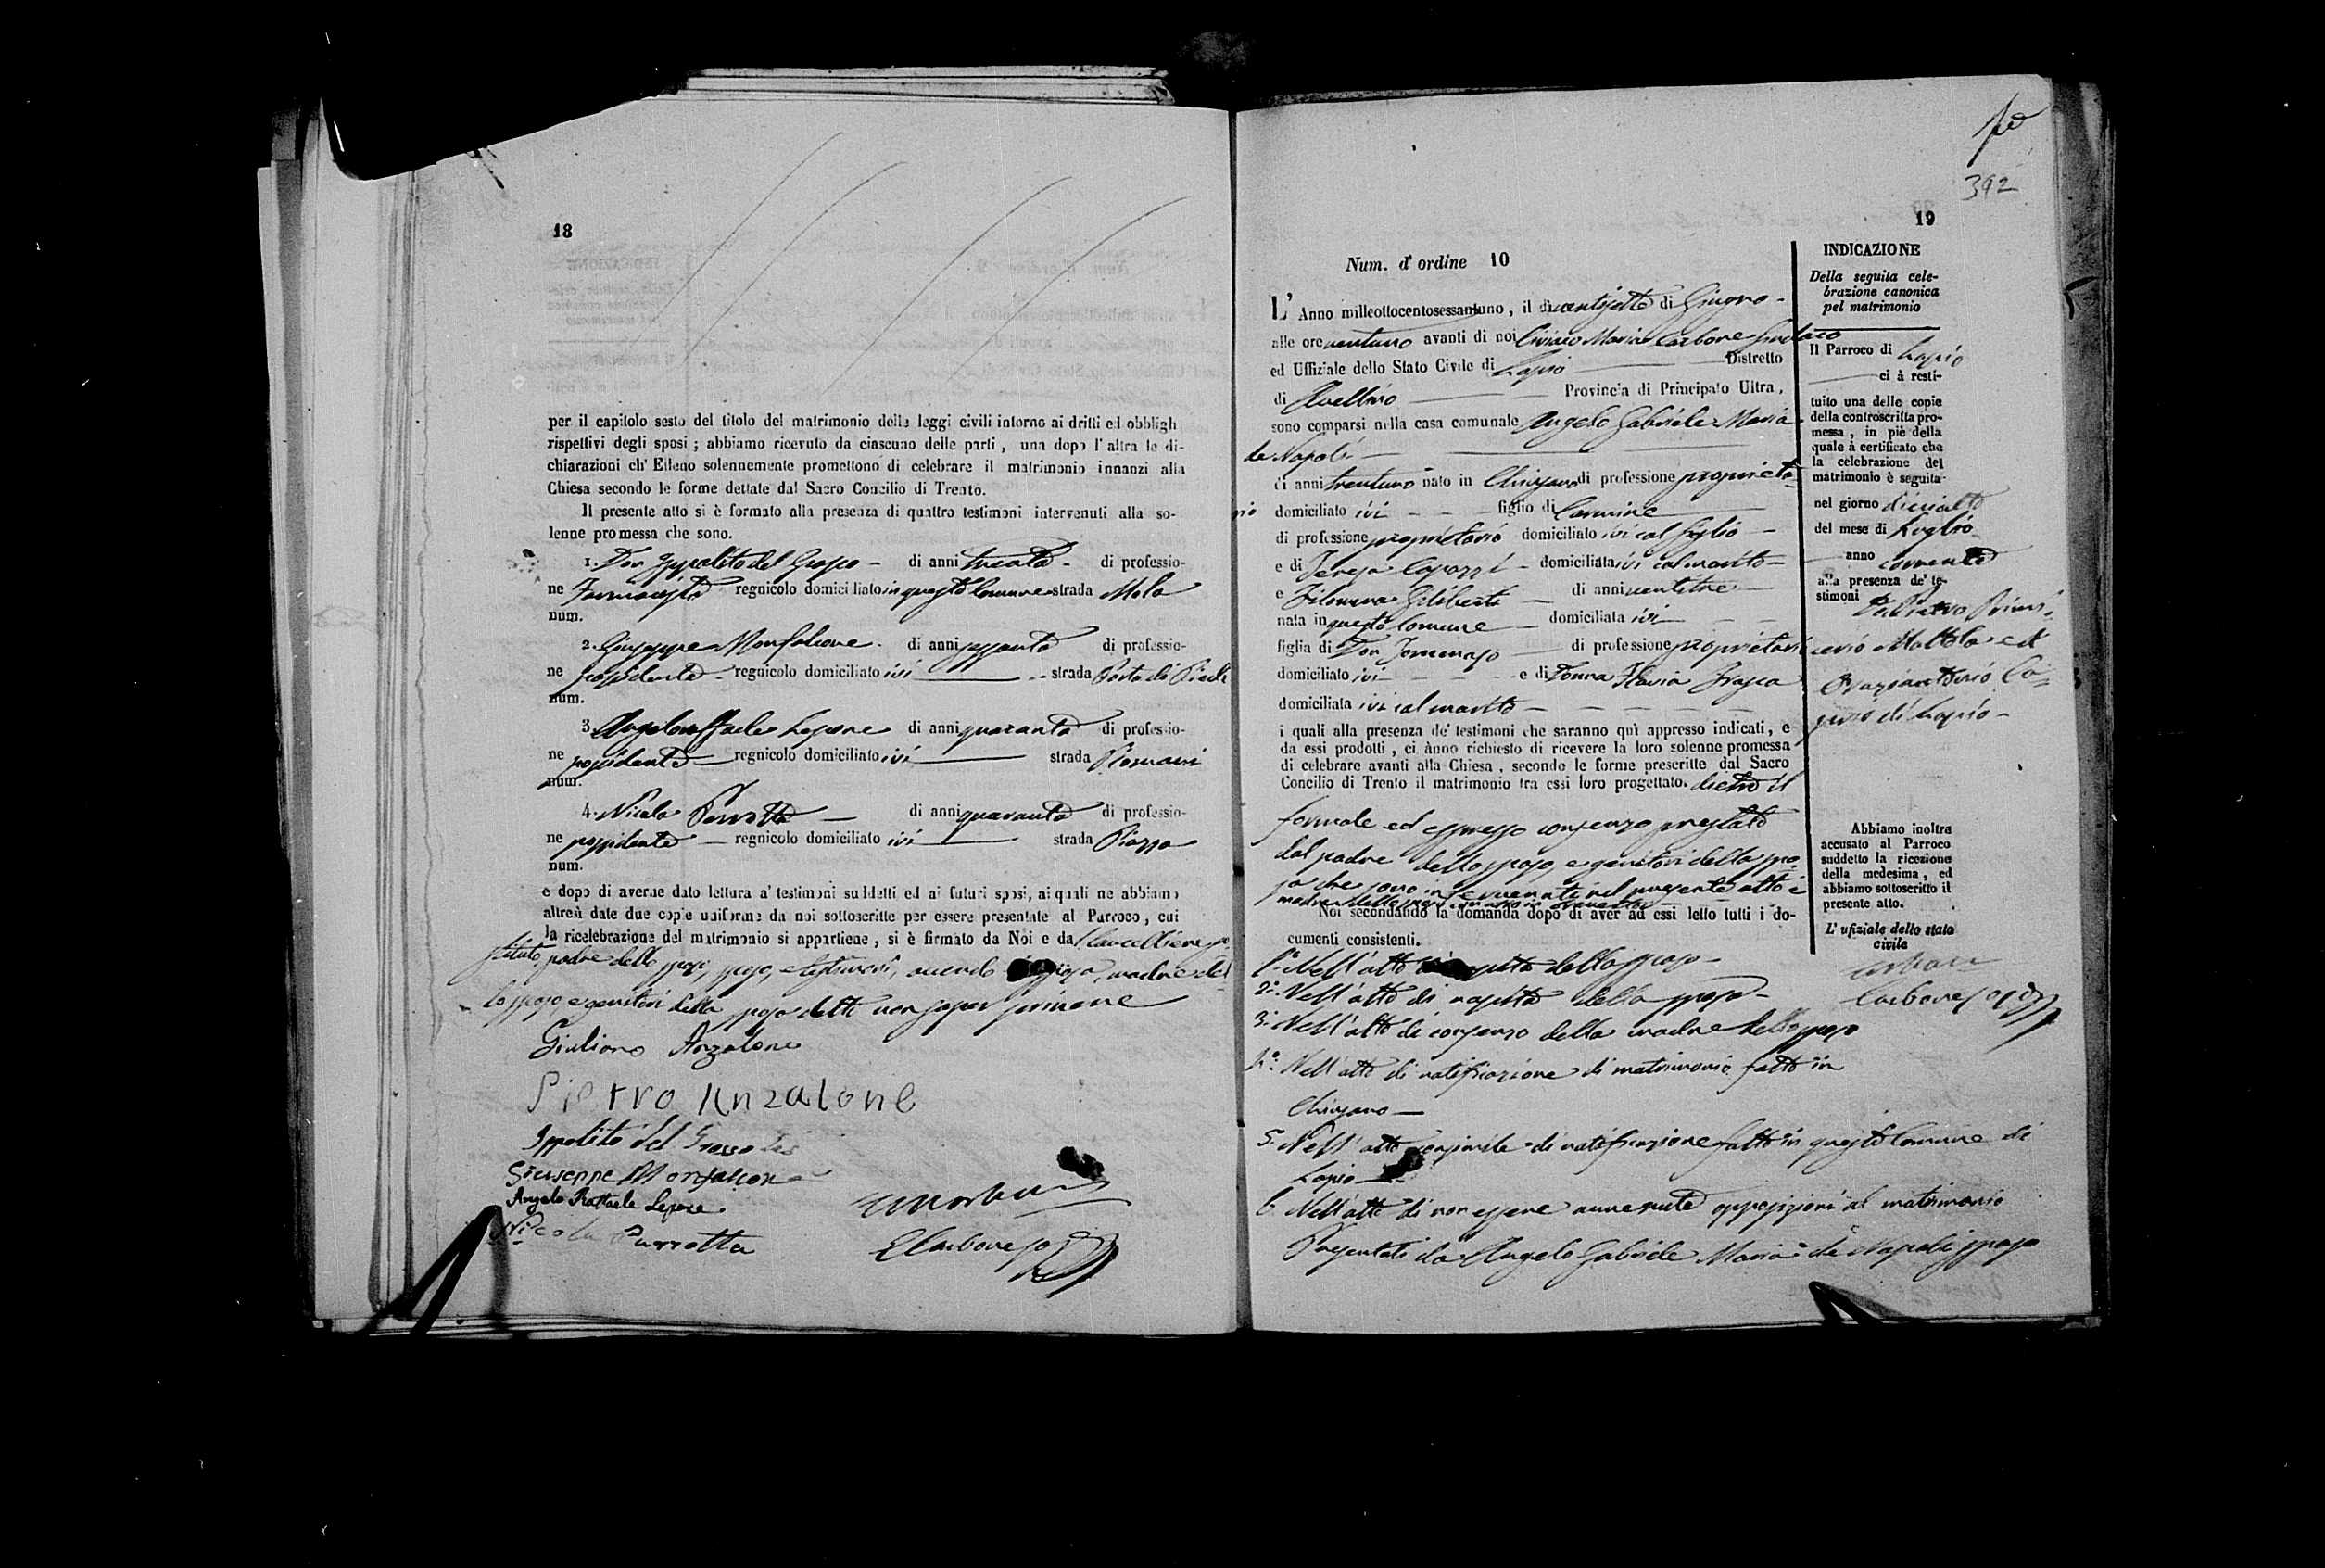 18
per il capitolo sesto del titolo del matrimonio delle leggi civili intorno ai dritti ed obbligh
rispettivi degli sposi ; abbiamo ricevuto da ciascuno delle parti , una dopo l'altra le di-
chiarazioni ch' Elleno solennemente promettono di celebrare il matrimonio innanzi alla
Chiesa secondo le forme dettate dal Sacro Concilio di Trento.
Il presente atto si è formato alla presenza di quattro testimoni intervenuti alla so-
lenne promessa che sono.
1. Don Ippolito del Grosso - di anni trenta - di professio-
ne Farmacista regnicolo domiciliato in questo Comune strada Mola
num.
2. Giuseppe Monfalcone . di anni sessanta di professio-
ne possidente - regnicolo domiciliato ivi strada Porta di
num.
3. Angeloraffaele Lepore di anni quaranta di professio-
ne possidente - regnicolo domiciliato ivi strada
num.
4. Nicola Perrotta - di anni quaranta di professio-
ne possidente - regnicolo domiciliato ivi strada Piazza
num.
e dopo di averne dato lettura a' testimoni suddetti ed ai futuri sposi, ai quali ne abbiamo
altresì date due copie uniforme da noi sottoscritte per essere presentate al Parroco , cui
la ricelebrazione del matrimonio si appartiene , si è firmato da Noi e da Cancelliere so-
stituto, padre dello sposo, sposo, e testimoni, avendo sposa, madre del
lo sposo, e genitori della sposa detto non saper scrivere
Giuliano Anzalone
Pietro Anzalone
Ippolito del Grosso
Giuseppe Monfalcone
Angelo Raffaele Lepore.
Nicola Perrotta
392
19
Num. d' ordine 10
L' Anno milleottocentosessantuno , il dì ventisette di Giugno -
alle ore ventuno avanti di noi Ciriaco Maria Carbone Sindaco
ed Uffiziale dello Stato Civile di Lapio Distretto
di Avellino Provincia di Principato Ultra ,
sono comparsi nella casa comunale Angelo Gabriele Maria
de Napoli -
di anni trentuno nato in Chiusano di professione proprieta-
rio domiciliato ivi - - - figlio di Carmine
di professione proprietario domiciliato ivi col figlio -
e di Teresa Capozzi - domiciliata ivi col marito -
e Filomena Ziliberti - di anni ventitre -
nata in questo Comune - domiciliata ivi -
figlia di Don Tommaso di professione proprietari
domiciliato ivi - e di Donna Flavia Frasca
domiciliata ivi col marito -
i quali alla presenza de' testimoni che saranno quì appresso indicati, e
da essi prodotti , ci ànno richiesto di ricevere la loro solenne promessa
di celebrare avanti alla Chiesa , secondo le forme prescritte dal Sacro
Concilio di Trento il matrimonio tra essi loro progettato. dietro il
formale ed espresso consenzo prestato
dal padre dello sposo, e genitori della spo-
sa che sono intervenuti nel presente atto e
madre dello sposo
Noi secondando la domanda dopo di aver ad essi letto tutti i do-
cumenti consistenti.
1.° Nell'atto di nascita dello sposo -
2.° Nell'atto di nascita della sposa -
3.° Nell'atto di consenzo della madre dello sposo
4.° Nell'atto di notificazione di matrimonio fatto in
Chiusano -
5. Nell'atto consimile di notificazione fatto in questo Comune di
Lapio -
6. Nell'atto di non essere avvenute opposizioni al matrimonio
Presentati da Angelo Gabriele Maria de Napoli sposo
INDICAZIONE
Della seguita cele-
brazione canonica
pel matrimonio
Il Parroco di Lapio
ci à resti-
tuito una delle copie
della controscritta pro-
messa , in piè della
quale à certificato che
la celebrazione del
matrimonio è seguita
nel giorno diciotto
del mese di Luglio
anno corrente
alla presenza de' te-
stimoni
Mottola ed
di Lapio -
Abbiamo inoltre
accusato al Parroco
suddetto la ricezione
della medesima , ed
abbiamo sottoscritto il
presente atto.
L' ufiziale dello stato
civile
Carbone